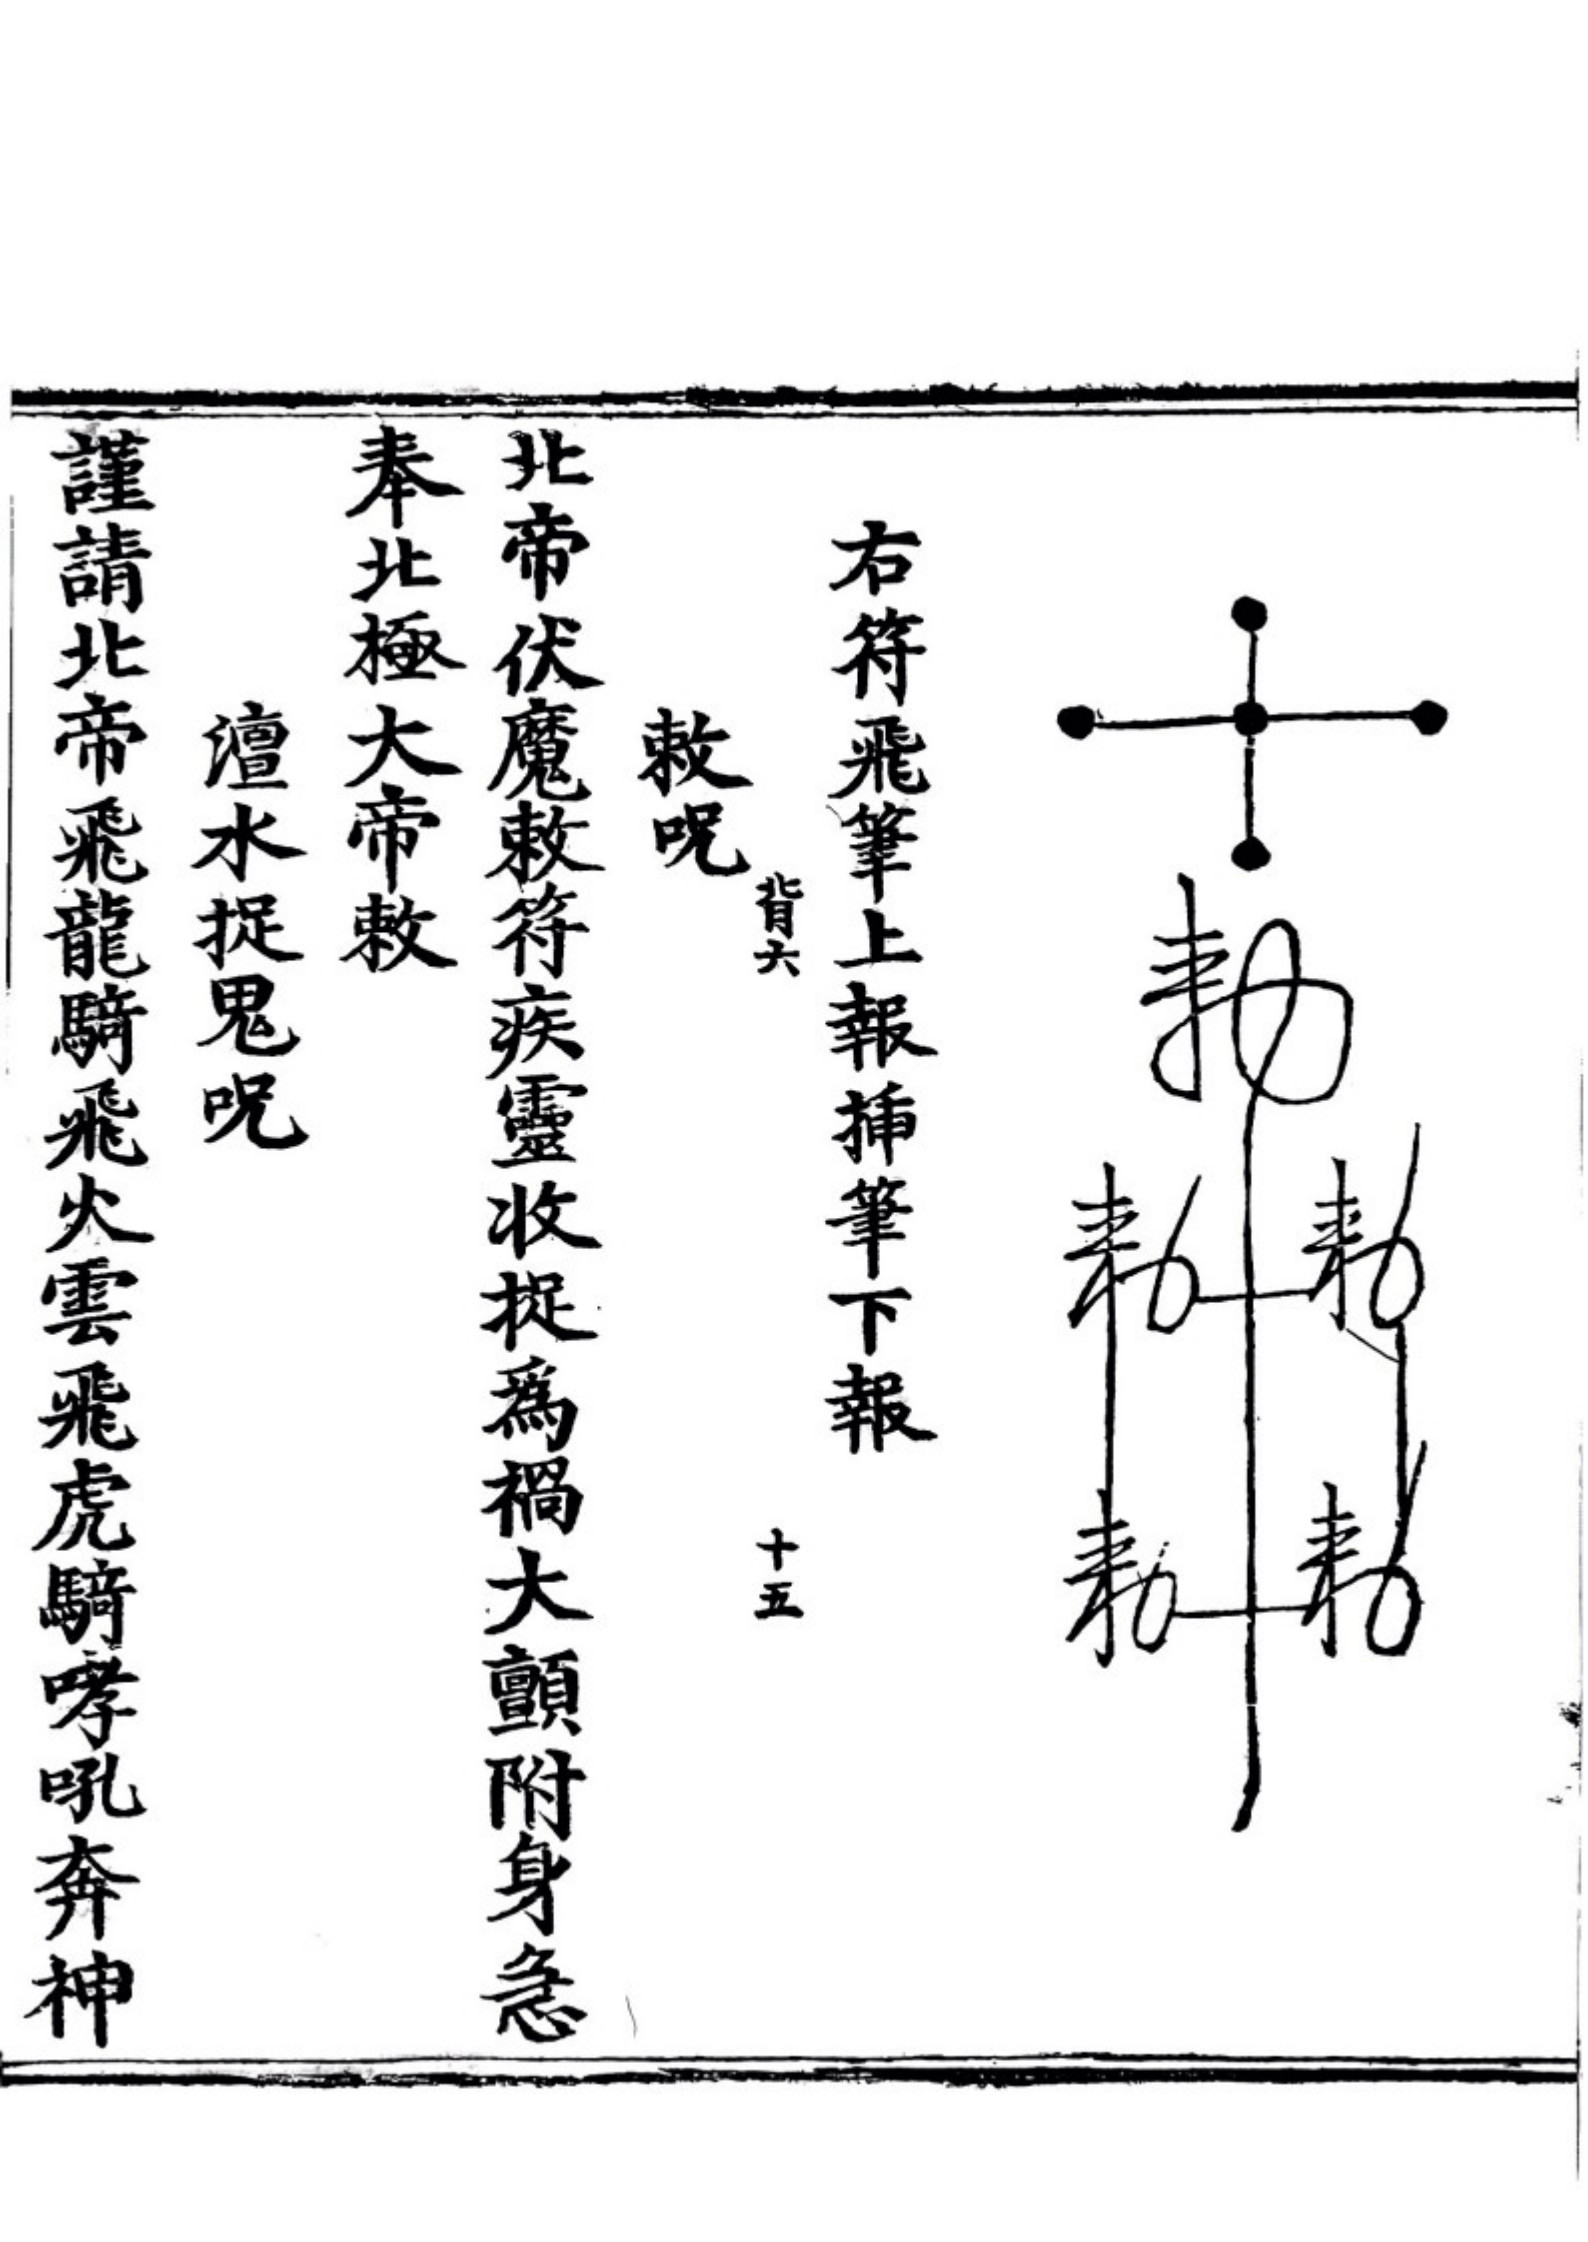 勑
勑 勑
勑 勑
右符飛筆上報揷筆下報
背六 十五
敕呪
北帝伏魔敕符疾靈收捉爲禍大顫附身急
奉北極大帝敕
澶水捉鬼呪
謹請北帝飛龍騎飛火雲飛虎騎哮吼奔神